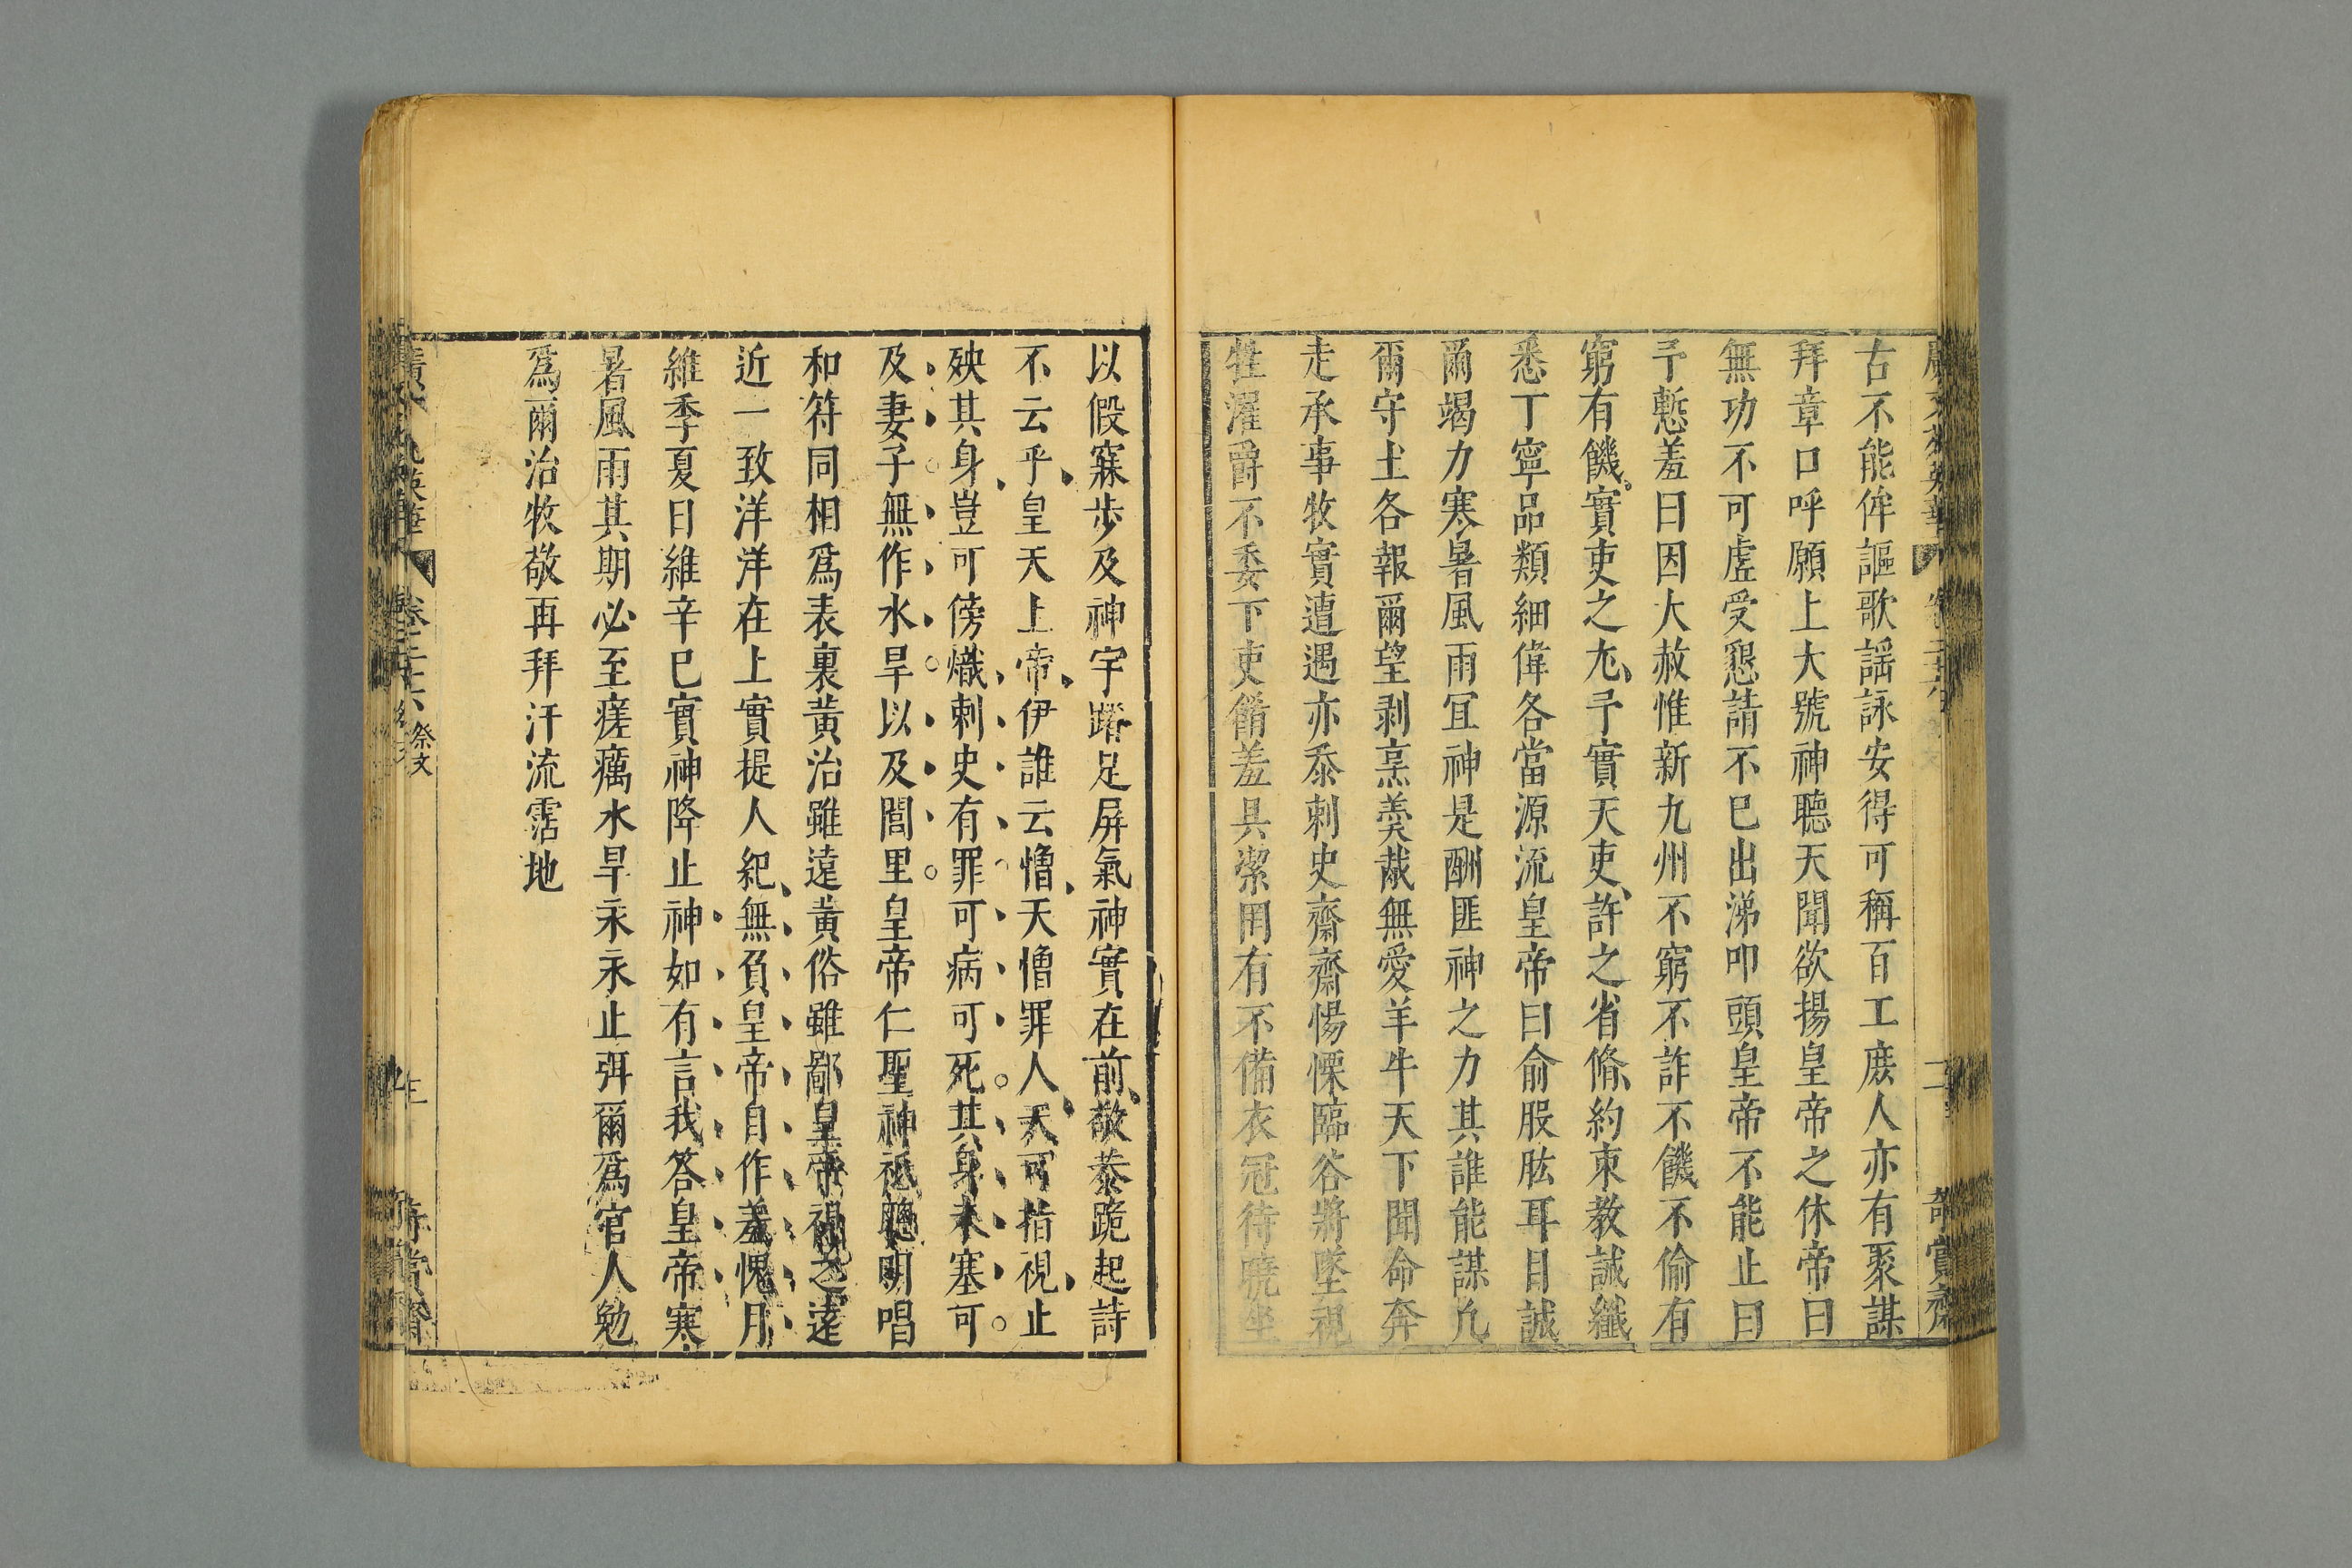 古不能侔謳歌謡詠安得可稱百工庶人亦有聚謀
拜章口呼願上大號神聽天聞欲揚皇帝之休帝曰
無功不可虛受懇請不已出涕叩頭皇帝不能止曰
予慙羞曰因大赦惟新九州不窮不詐不饑不偷有
窮有饑實吏之尤予實天吏許之省脩約束教誠纖
悉丁寧品類細偉各當源流皇帝曰俞股肱耳目誠
爾竭力寒暑風雨冝神是酬匪神之力其誰能謀九
爾守土各報爾望剥烹羮胾無愛羊牛天下聞命奔
走承事牧實遭遇亦忝刺史齋齋惕慄臨谷將墜視
牲濯爵不委下吏餚羞具潔罔有不備衣冠待曉坐
以假寐步及神宇踏足屏氣神實在前敬恭跪起詩
不云乎皇天上帝伊誰云憎天憎罪人天可指視止
殃其身豈可傍熾刺史有罪可病可死其身未塞可
及妻子無作水旱以及閭里皇帝仁聖神祗聰明唱
和符同相爲表裏黃治雖遠黃俗雖鄙皇帝視之遠
近一致洋洋在上實提人紀無負皇帝自作羞愧月
維季夏日維辛巳實神降止神如有言我答皇帝寒
暑風雨其期必至瘥癘水旱永永止弭爾爲官人勉
爲爾治牧敬再拜汗流霑地
祭文